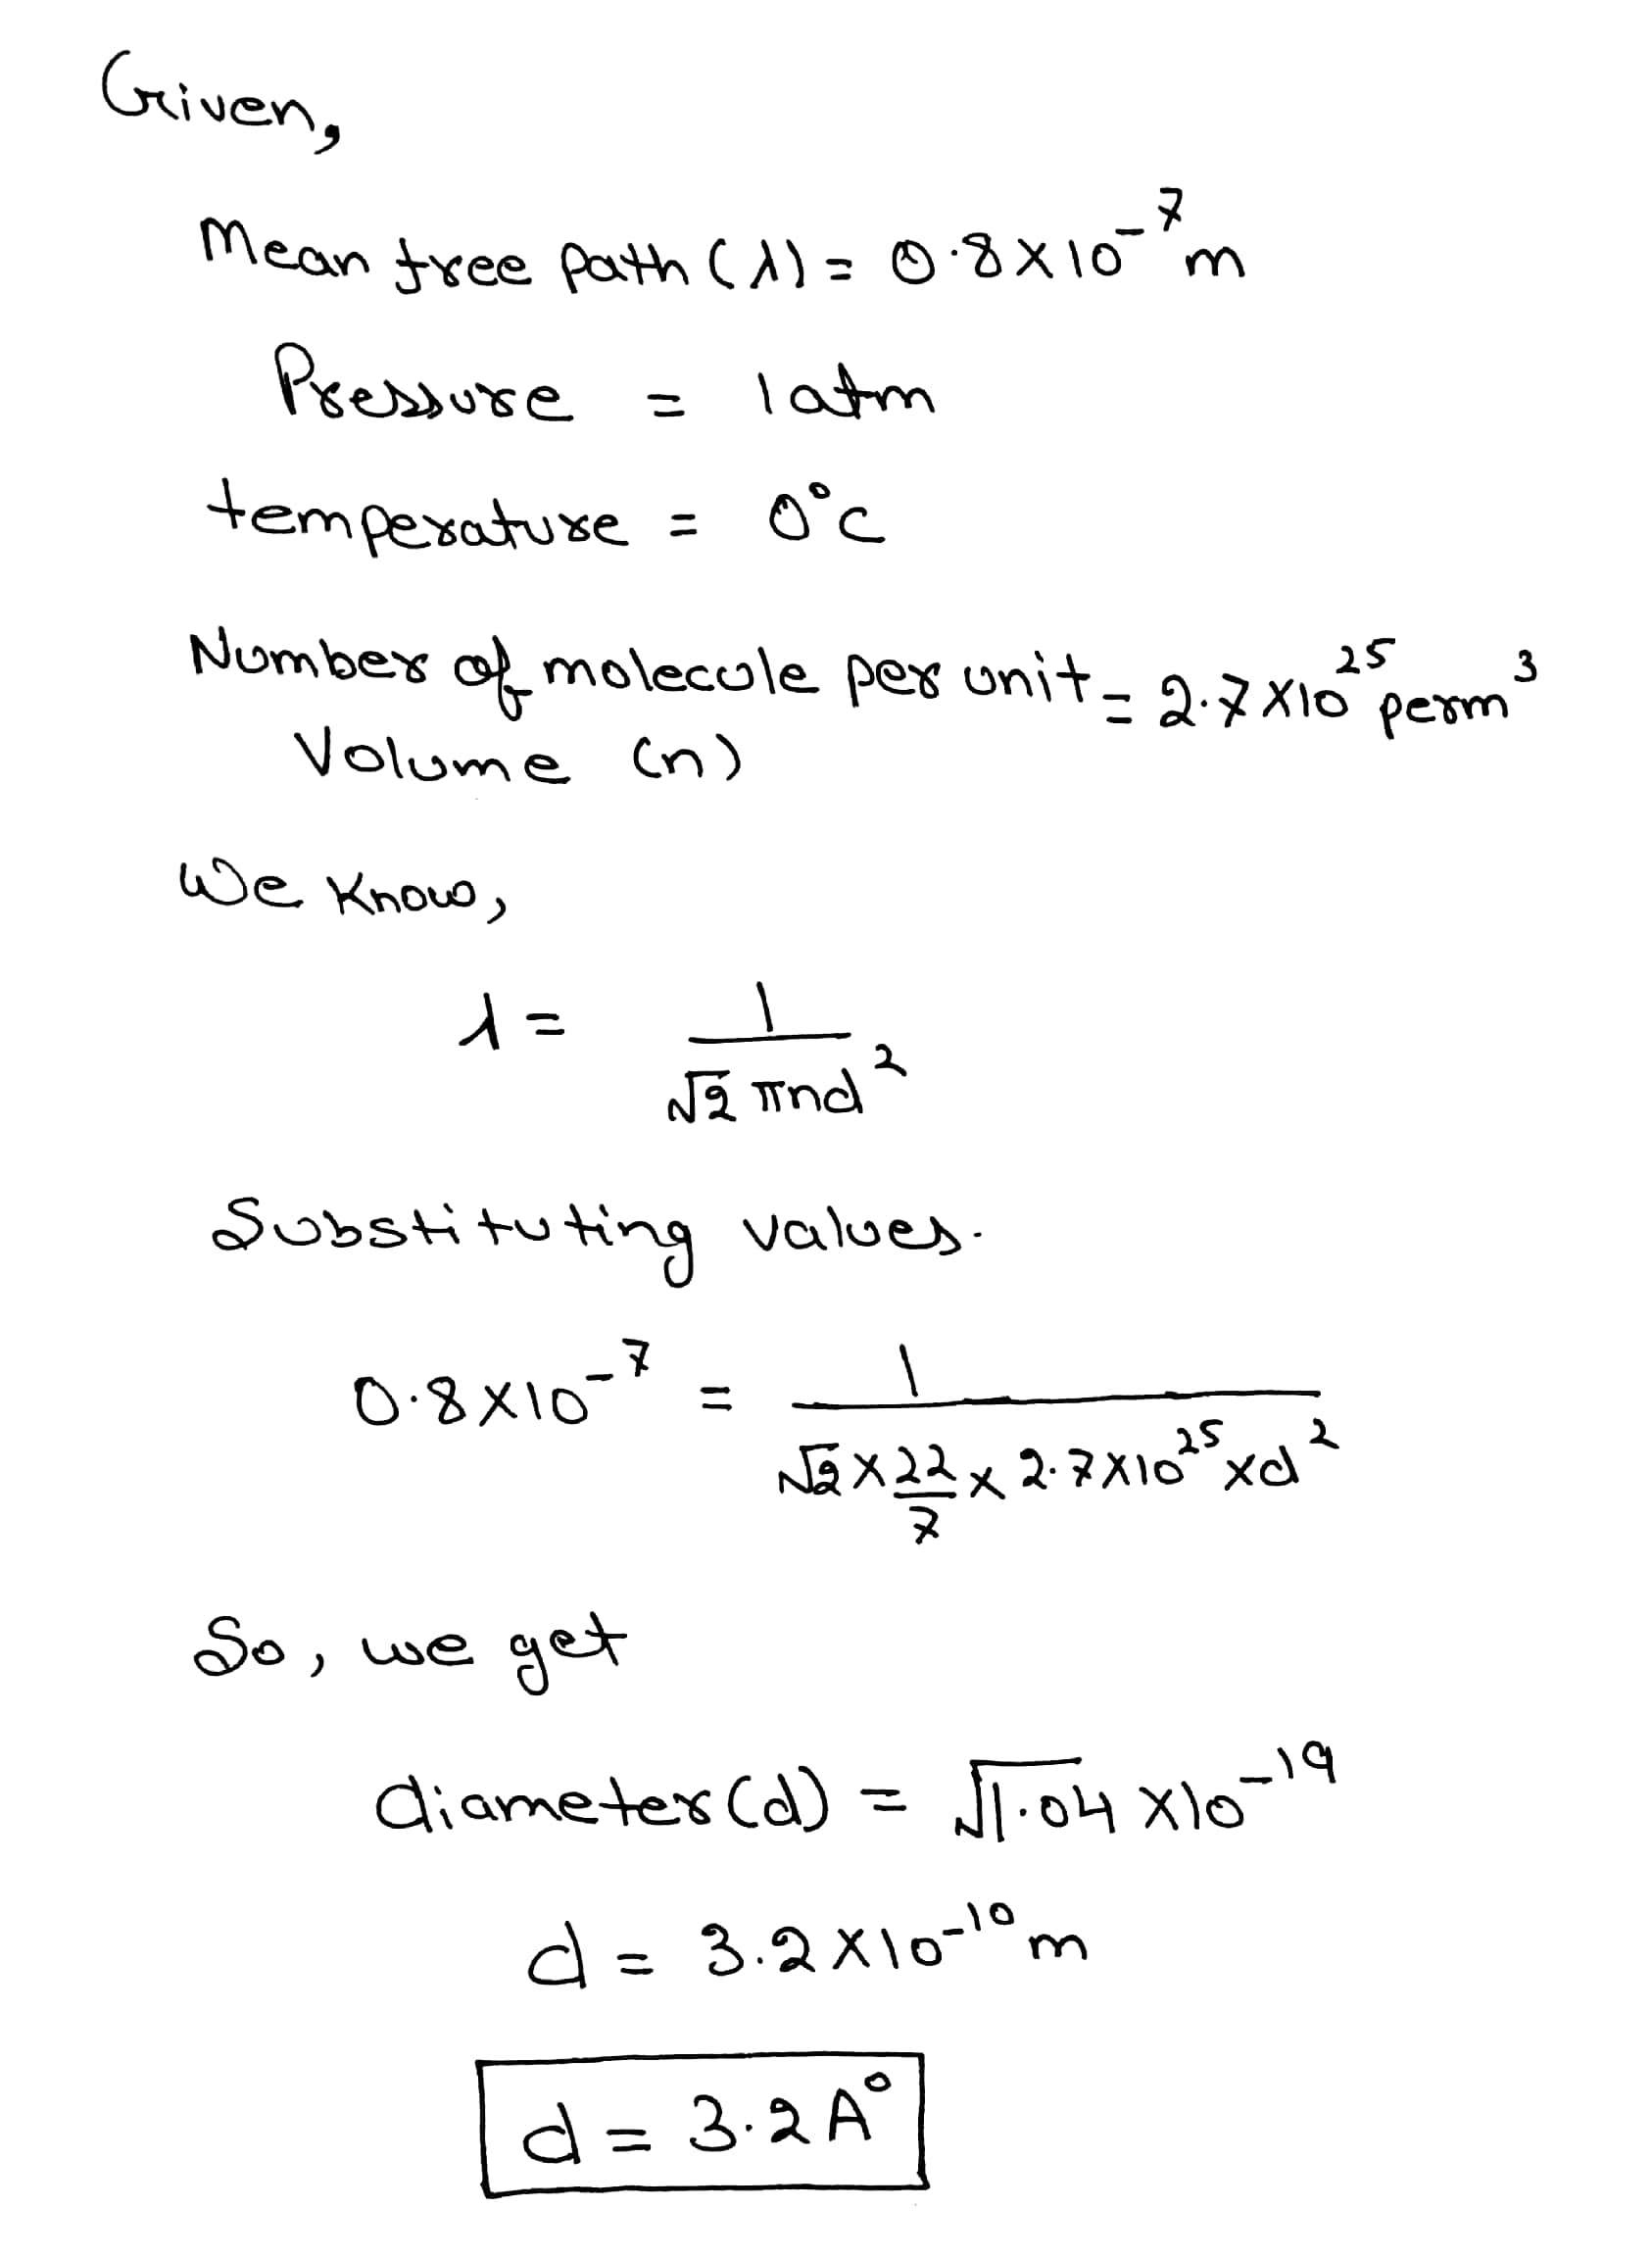 Given,
Mean free path (λ) = 0.8×10⁻⁷ m
Pressure = 1 atm
temperature = 0°C
Number of molecule per unit = 2.7×10²⁵ per m³
Volume (n)
We know,
λ = 1/(√2 πnd²)
Substituting values.
0.8×10⁻⁷ = 1/(√2 × 22/7 × 2.7×10²⁵ × d²)
So, we get
diameter (d) = √1.04 ×10⁻¹⁹
d = 3.2×10⁻¹⁰ m
d = 3.2 A°